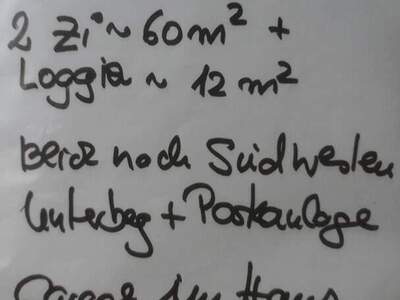 2 Zi ~ 60 m² +
Loggia ~ 12 m²
beide nach Südwesten
Unterberg + Parkanlage
im Haus